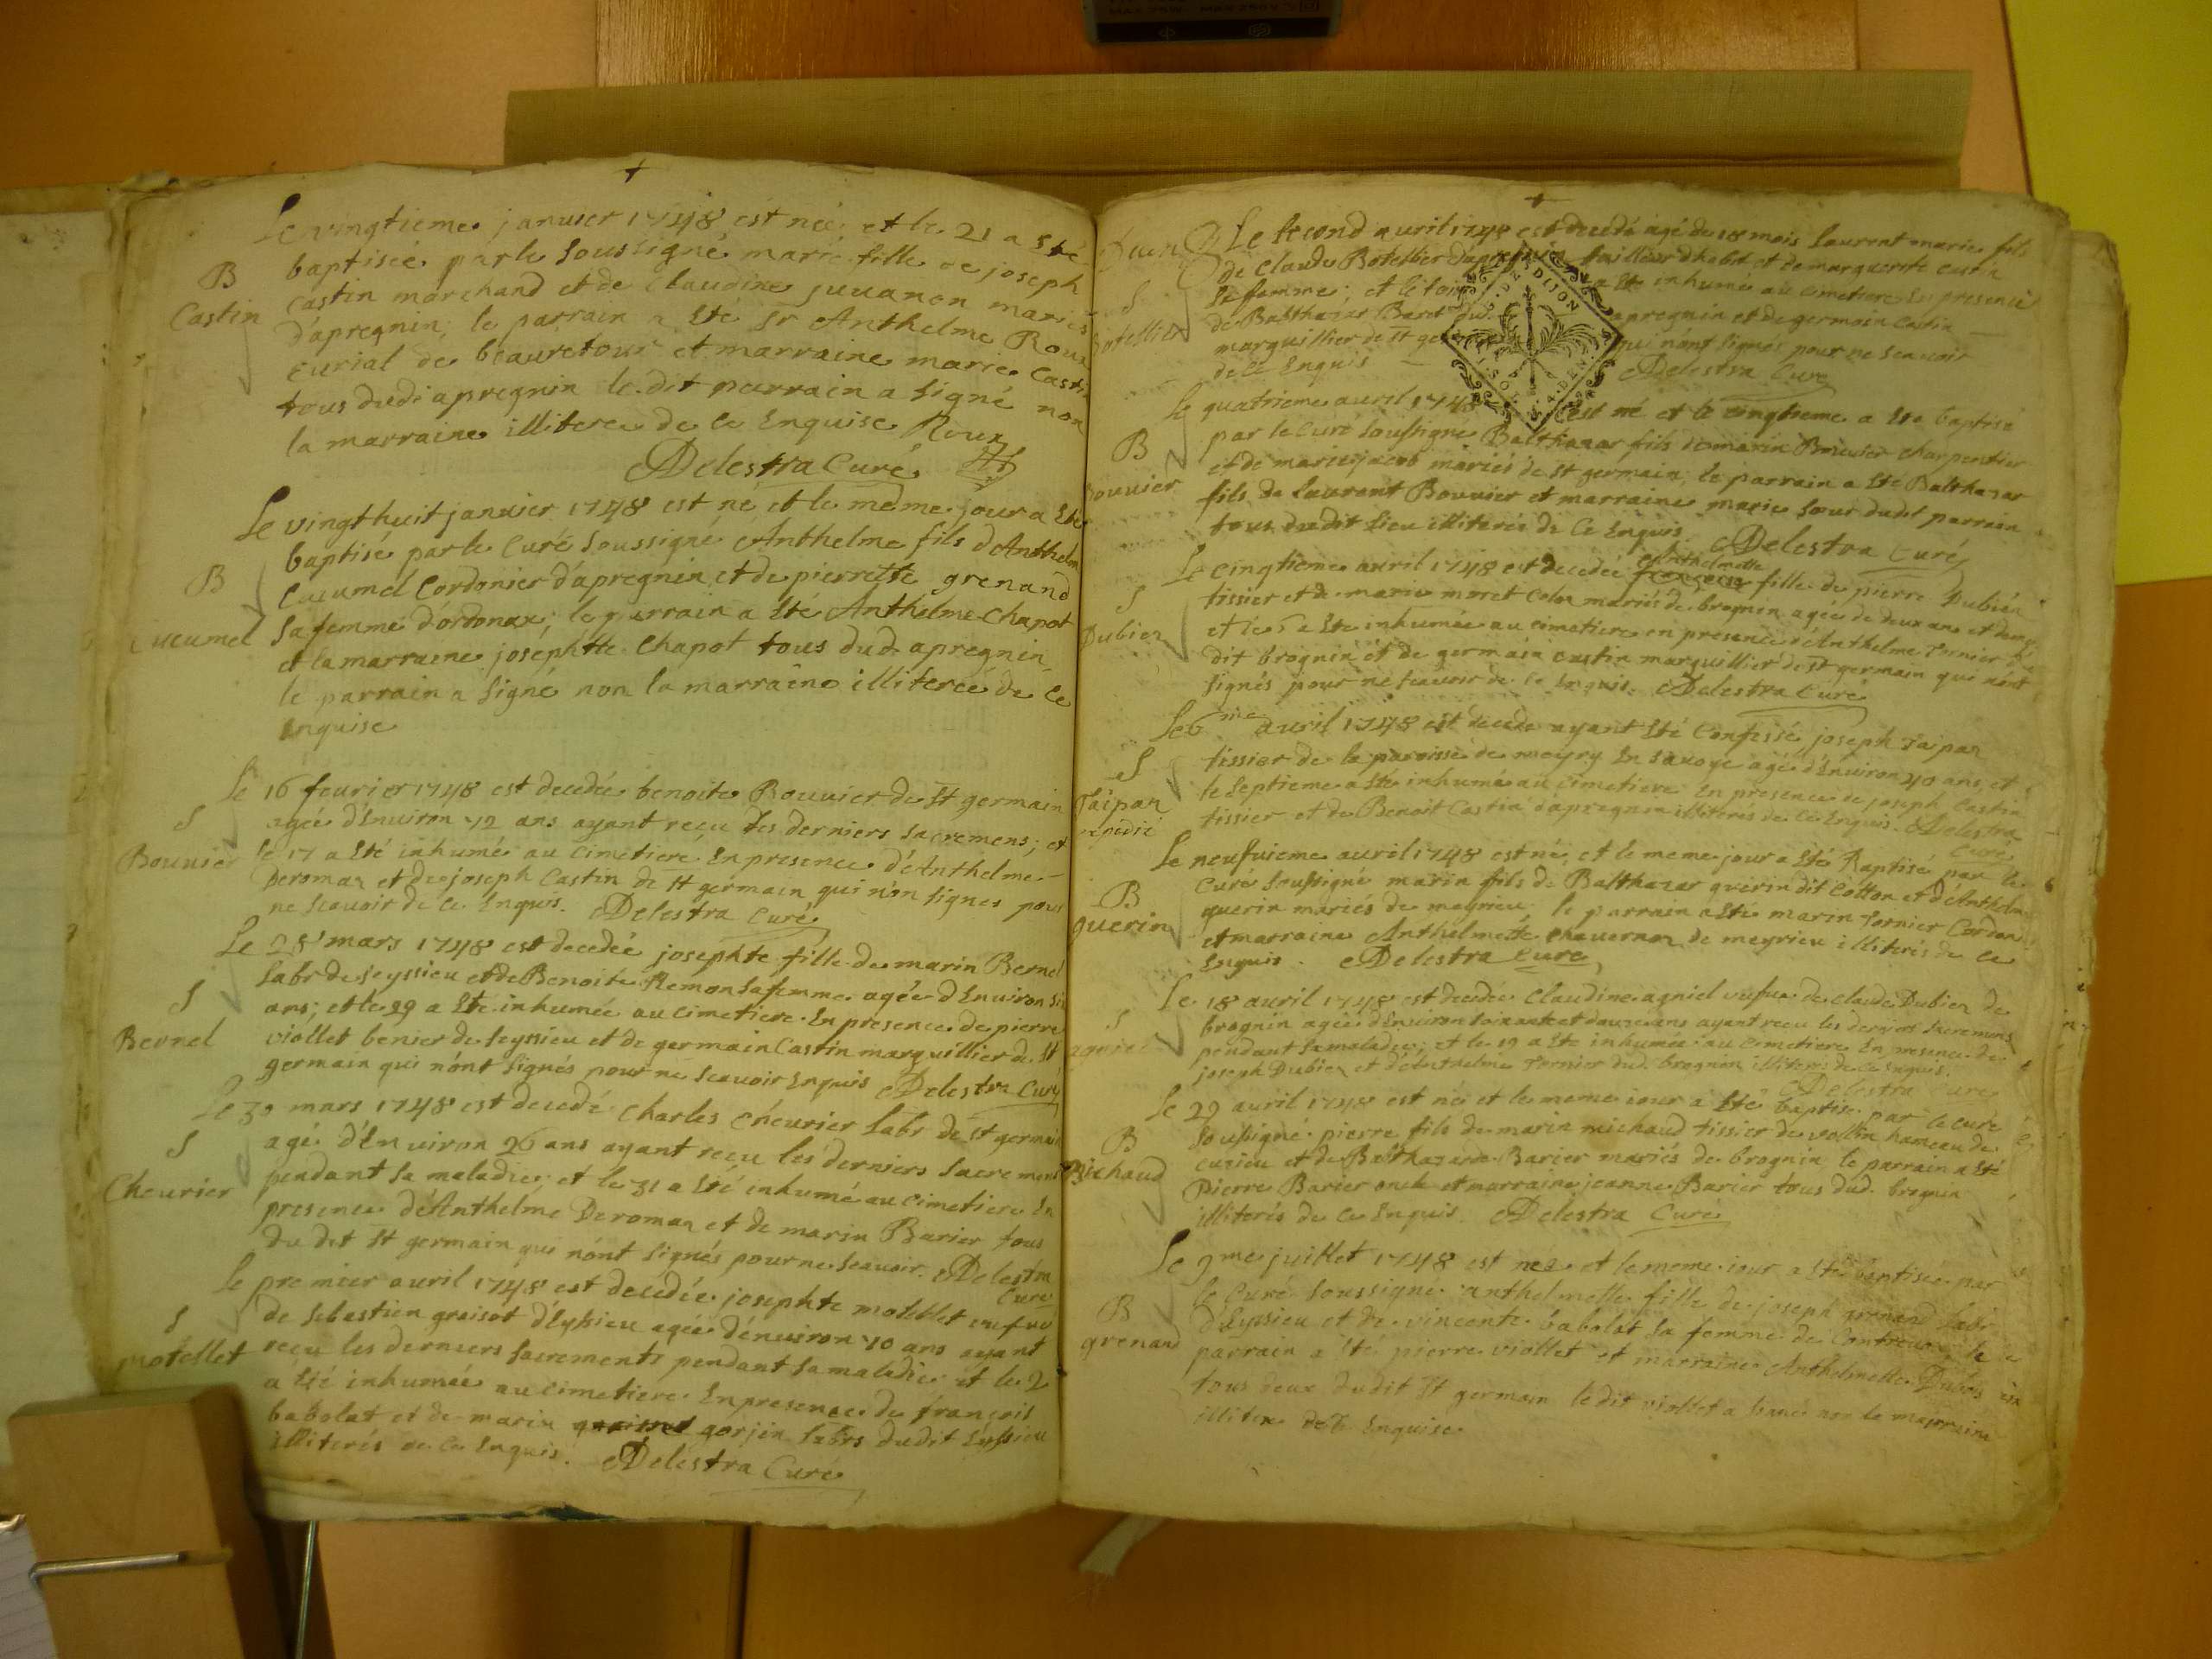 Le vingtieme janvier 1748 est née et le 21 a Eté
B
baptisée par le soussigné marie fille de joseph
Castin
Castin marchand et de Claudine juuanon mariés
d'apregnin; le parrain a Eté Sr Anthelme Roux
curial de beauretour et marraine marie Casti
tous dudi apregnin le dit parrain a signé non
la marraine illiterée de ce Enquise Roux
Delestra Curé
Le vingt huit janvier 1748 est né et le meme jour a Eté
baptisé par le Curé Soussigné Anthelme fils d'Anthelm
B
Cucumel Cordonier d'apregnin et de pierrette grenand
Cucumel
sa femme d'ordonax; le parrain a Eté Anthelme Chapot
et la marraine josephtte Chapot tous dud. apregnin,
le parrain a signé non la marraine illiterée de ce
Enquise
Le 16 feurier 1748 est decedée benoite Bouvier de St germain
S
agée d'Enuiron 72 ans ayant reçu les derniers sacremens; et
Bouuier
le 17 a Eté inhumé au Cimetiere En presence d'Anthelme
Deroman et de joseph Castin de St germain qui n'on signes pour
ne scauoir de ce Enquis. Delestra Curé
Le 28 mars 1748 est decedée josephte fille de marin Bernel
Labr de seyssieu et de Benoite Remon sa femme agée d'Enuiron six
S
ans; et le 29 a Eté inhumée au cimetiere En presence de pierre
Bernel
viollet benier de seyssieu et de germain Castin marguillier de St
germain qui n'ont signés pour ne scauoir Enquis Delestra Curé
Le 30 mars 1748 est decedé Charles Cheurier Labr de St germain
S
agé d'Enuiron 26 ans ayant reçu les derniers sacremens
Cheurier
pendant sa maladie; et le 31 a Eté inhumé au cimetiere En
presence d'Anthelme Deroman et de marin Barier tous
du dit St germain qui n'ont signés pour ne scauoir. Delestra
Curé
Le premier auril 1748 est decedée josephte motellet vefue
S
de Sebastien graisot d'Eyssieu agée d'enuiron 70 ans ayant
motellet
reçu les derniers sacrements pendant sa maladie et le 2
a Eté inhumée au cimetiere En presence de françois
babolat et de marin gorjin Labrs dudit Eyssieu
illiterés de ce Enquis. Delestra Curé
Le second auril 1748 est decedé agé de 18 mois laurent marie fils
de Claude Botellier d'apregnin tailleur d'habit et de marguerite Castin
S
sa femme; et le a Eté inhumé au cimetiere En presence
Botellier
de Balthazar Baret dud. apregnin et de germain Castin
marguillier de St ger qui n'ont signés pour ne scauoir
de ce Enquis Delestra Curé
Le quatrieme auril 1748 est né et le cinqtieme a Eté baptisé
B
par le Curé soussigné Balthazar fils de marin Bouvier charpentier
Bouuier
et de marie jacob mariés de St germain; le parrain a Eté Balthazar
fils de Laurent Bouvier et marraine marie sœur dudit parrain
tous dudit lieu illiterés de ce Enquis Delestra Curé
Le cinqtieme auril 1748 est decedée Anthelmette fille de pierre Dubien
S
tissier et de marie moret mariés de brognin agée de deux ans et demi
Dubien
et le 5 a Eté inhumée au cimetiere en presence d'Anthelme Tornier du
dit brognin et de germain castin marguillier de St germain qui n'ont
signés pour ne scauoir de ce Enquis. Delestra Curé
Le 6me auril 1748 est decedé ayant Eté Confessé, joseph Taipan
S
tissier de la paroisse de meyry En sauoye agé d'Enuiron 40 ans, et
Taipan
le septieme a Eté inhumé au Cimetiere En presence de joseph Castin
expedié
tissier et de Benoit Castin d'apregnin illiterés de ce Enquis. Delestra
Curé
Le neufuieme auril 1748 est né, et le meme jour a Eté Baptisé par le
B
Curé soussigné marin fils de Balthazar guerin dit Cotton et d'Anthelm
guerin
guerin mariés de meyrieu le parrain a Eté marin Tornier Cordon
et marraine Anthelmette chauernon de meyrieu illiterés de ce
Enquis. Delestra Curé
Le 18 auril 1748 est decedée Claudine agniel vefue de claude Dubien de
S
brognin agée d'Enuiron soixante et douze ans ayant recu les derniers sacremens
agniel
pendant sa maladie; et le 19 a Eté inhumée au cimetiere En presence de
joseph Dubien et d'Anthelme Tornier dud. brognin illiterés de ce Enquis.
Delestra Curé
Le 29 auril 1748 est né et le meme jour a Eté baptisé par le curé
B
soussigné pierre fils de marin michaud tissier de vollin hameau de
Michaud
cuzieu et de Balthazarde Barier mariés de brognin, le parrain a Eté
Pierre Barier oncle et marraine jeanne Barier tous dud. brognin
illiterés de ce Enquis. Delestra Curé
Le 9me juillet 1748 est née et le meme jour a Eté baptisée par
B
le Curé soussigné anthelmette fille de joseph grenand Labr
grenand
d'Eyssieu et de vincente babolat sa femme de Contreuoz; le
parrain a Eté pierre viollet et marraine Anthelmette Dubois
tous deux dudit St germain le dit viollet a signé non la marraine
illiteree de ce Enquise